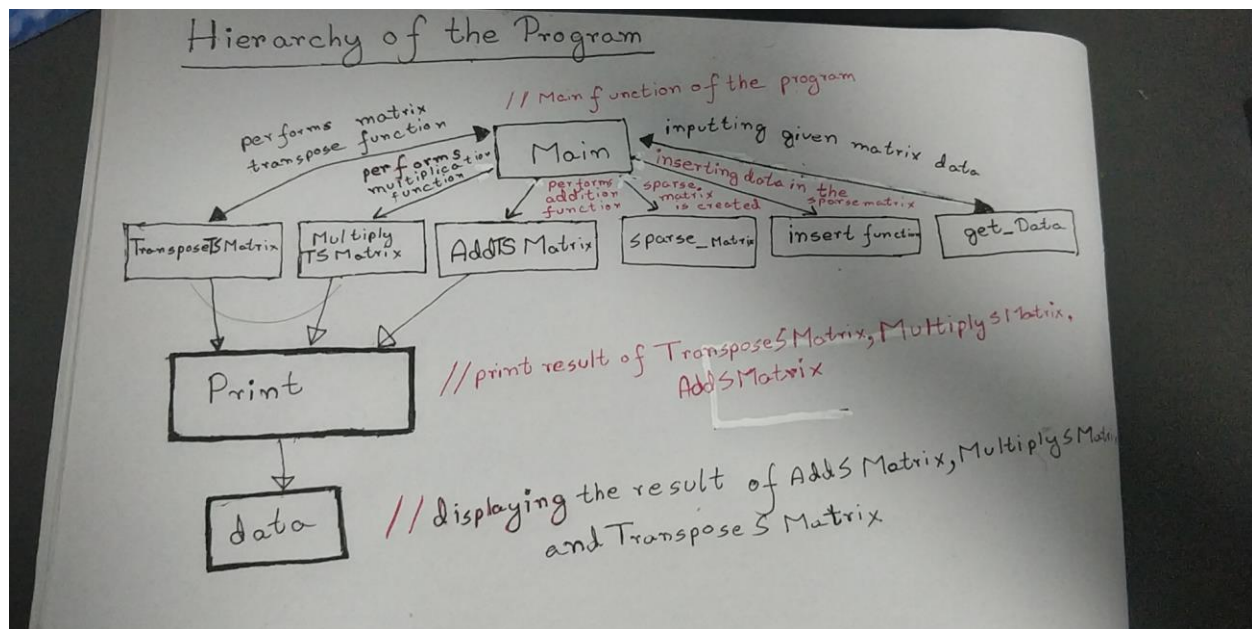 Hierarchy of the Program
// Main function of the program
performs matrix
transpose function
performs
multiplication
function
Main
inputting given matrix data
performs
addition
function
sparse
matrix
is created
inserting data in the
sparse matrix
TransposeTSMatrix
Multiply
TS Matrix
AddTS Matrix
Sparse_Matrix
insert function
get_Data
Print
//print result of TransposeSMatrix, MultiplySMatrix,
AddSMatrix
data
//displaying the result of AddS Matrix, MultiplySMatri
and Transpose S Matrix